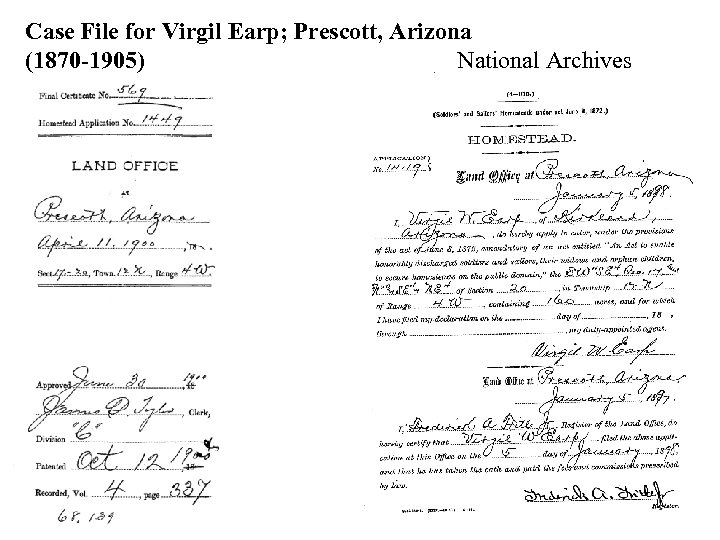 Case File for Virgil Earp; Prescott, Arizona
(1870-1905) National Archives
Final Certificate No. 569
Homestead Application No. 1449
LAND OFFICE
AT
Prescott, Arizona
April 11, 1900, 18 .
Sect. 17-20, Town. 12 N, Range 4 W
Approved June 30, 1900
James D. Tyler, Clerk,
Division "C"
Patented Oct 12 1900
Recorded, Vol. 4, page 337
68, 139
(4—070.)
(Soldiers' and Sailors' Homesteads under act June 8, 1872.)
HOMESTEAD.
APPLICATION
No. 1449
Land Office at Prescott, Arizona
January 5, 1898.
I, Virgil W. Earp of Kirkland,
Arizona, do hereby apply to enter, under the provisions
of the act of June 8, 1872, amendatory of an act entitled "An Act to enable
honorably discharged soldiers and sailors, their widows and orphan children,
to secure homesteads on the public domain," the SW¼ SE¼ Sec. 17
of Section 20, in Township 12 N
of Range 4 W, containing 160 acres, and for which
I have filed my declaration on the day of , 18 ,
through , my duly-appointed agent.
Virgil W Earp
Land Office at Prescott, Arizona
January 5, 1897.
I, Frederick A. , Register of the Land Office, do
hereby certify that Virgil W Earp filed the above appli-
cation at this Office on the 5 day of January, 1898,
and that he has taken the oath and paid the fees and commissions prescribed
by law.
Frederick A.
Register.